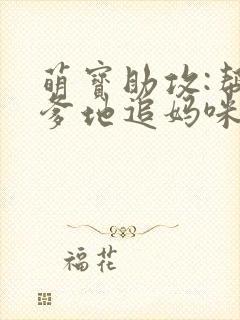 萌寶助攻:幫
爹地追妈咪
福花